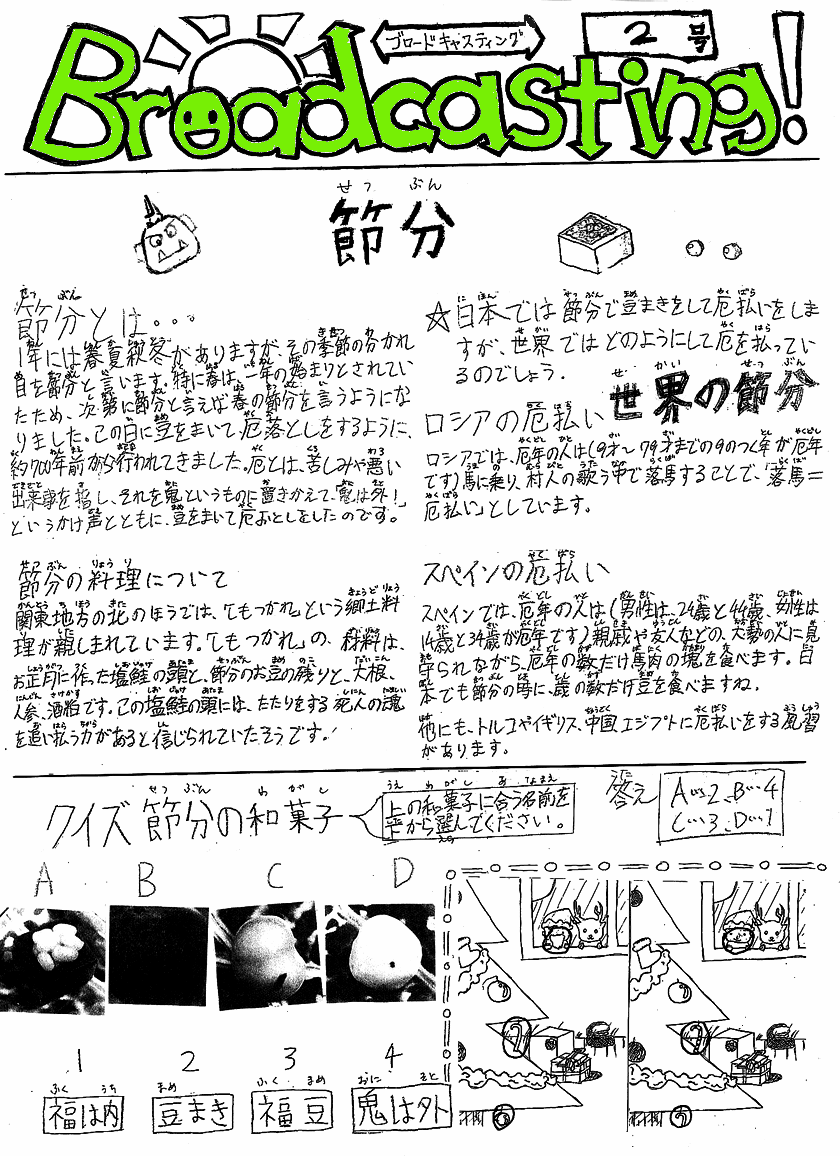 ブロードキャスティング
2号
Broadcasting!
せつ ぶん
節分
節分とは・・・
1年には春夏秋冬がありますが、その季節の分かれ
目を節分と言います。特に春は、一年の始まりとされてい
たため、次第に節分と言えば春の節分を言うようにな
りました。この日に豆をまいて、厄落としをするように、
約700年前から行われてきました。厄とは、苦しみや悪い
出来事を指し、それを鬼というものに置きかえて、「鬼は外!」
というかけ声とともに、豆をまいて厄おとしをしたのです。
節分の料理について
関東地方の北のほうでは、「しもつかれ」という郷土料
理が親しまれています。「しもつかれ」の、材料は、
お正月に作った塩鮭の頭と、節分のお豆の残りと、大根、
人参、酒粕です。この塩鮭の頭には、たたりをする死人の魂
を追い払う力があると信じられていたそうです。
☆日本では節分で豆まきをして厄払いをしま
すが、世界ではどのようにして厄を払ってい
るのでしょう.
せ かい せつ ぶん
世界の節分
ロシアの厄払い
ロシアでは、厄年の人は(9才~79才までの9のつく年が厄年
です)馬に乗り、村人の歌う中で落馬することで、「落馬=
厄払い」としています。
スペインの厄払い
スペインでは、厄年の人は(男性は、24歳と44歳、女性は
14歳と34歳が厄年です)親戚や友人などの、大勢の人に見
守られながら、厄年の数だけ馬肉の塊を食べます。日
本でも節分の時に、歳の数だけ豆を食べますね.
他にも、トルコやイギリス、中国、エジプトに厄払いをする風習
があります。
クイズ 節分の和菓子
上の和菓子に合う名前を
下から選んでください。
答え
A…2、B…4
C…3、D…1
A B C D
1 2 3 4
ふく うち まめ ふく まめ おに そと
福は内 豆まき 福豆 鬼は外